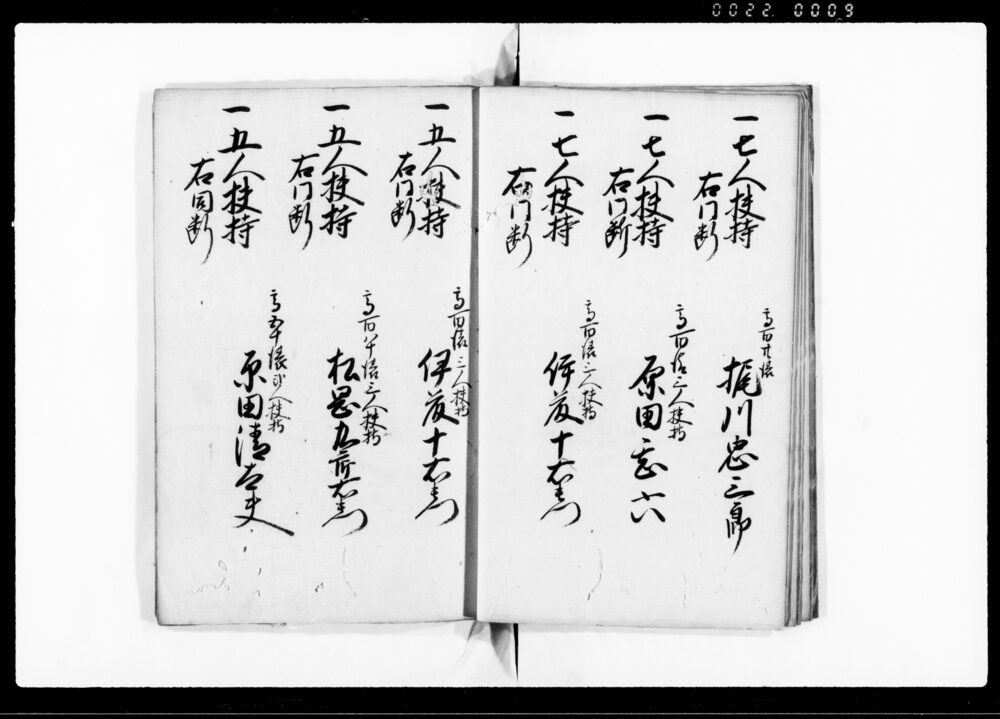 0022 0009
一七人扶持
右同断
高百廿俵
梶川忠三郎
一七人扶持
右同断
高百俵三人扶持
原田六
一七人扶持
右同断
高百俵三人扶持
伊藤十右衛門
一五人扶持
右同断
高百俵三人扶持
伊藤十右衛門
一五人扶持
右同断
高百八十俵三人扶持
松岡九郎右衛門
一五人扶持
右同断
高五十俵 人扶持
原田清太夫